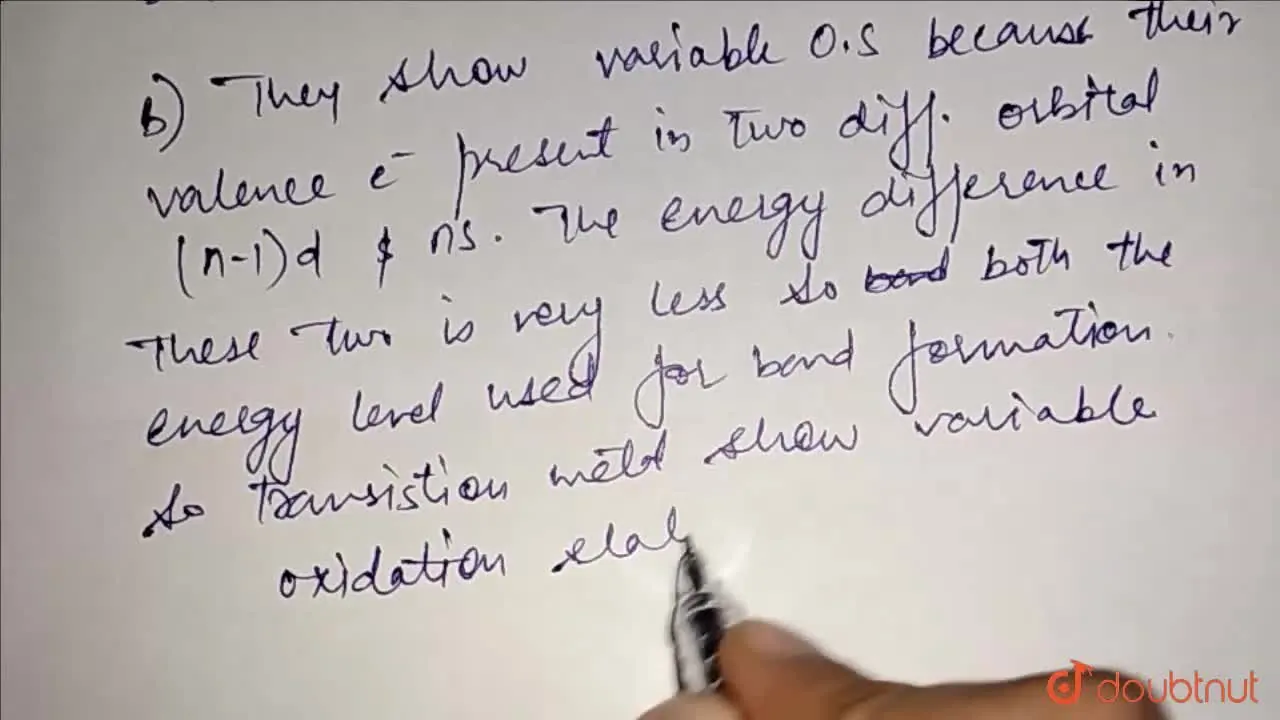 b) They show variable O.S because their
valence e⁻ present in two diff. orbital
(n-1)d & ns. The energy difference in
These two is very less so both the
energy level used for bond formation.
So transistion metal show variable
oxidation
doubtnut